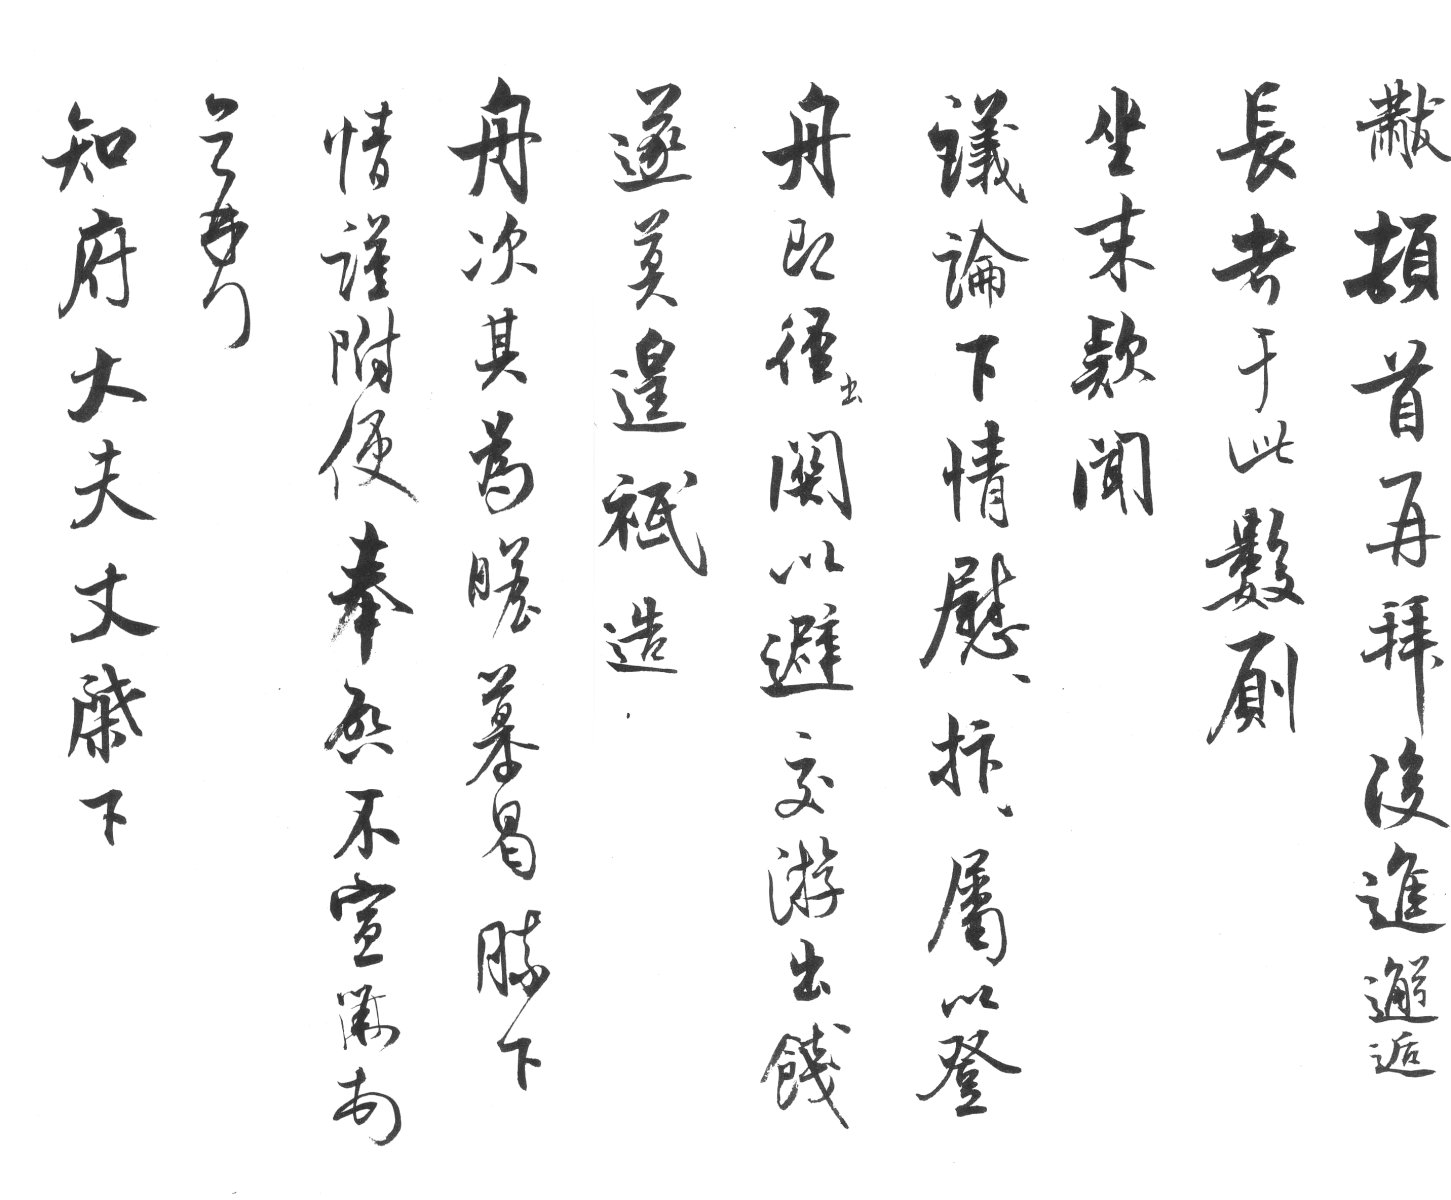 黻頓首再拜後進邂逅
長者于此數厠
坐末款聞
議論下情慰、抃、屬以登
舟即徑出關以避交游出餞
遂莫遑祗造
舟次其為瞻慕曷勝下
情謹附便奉啓不宣黻

知府大夫丈棨下